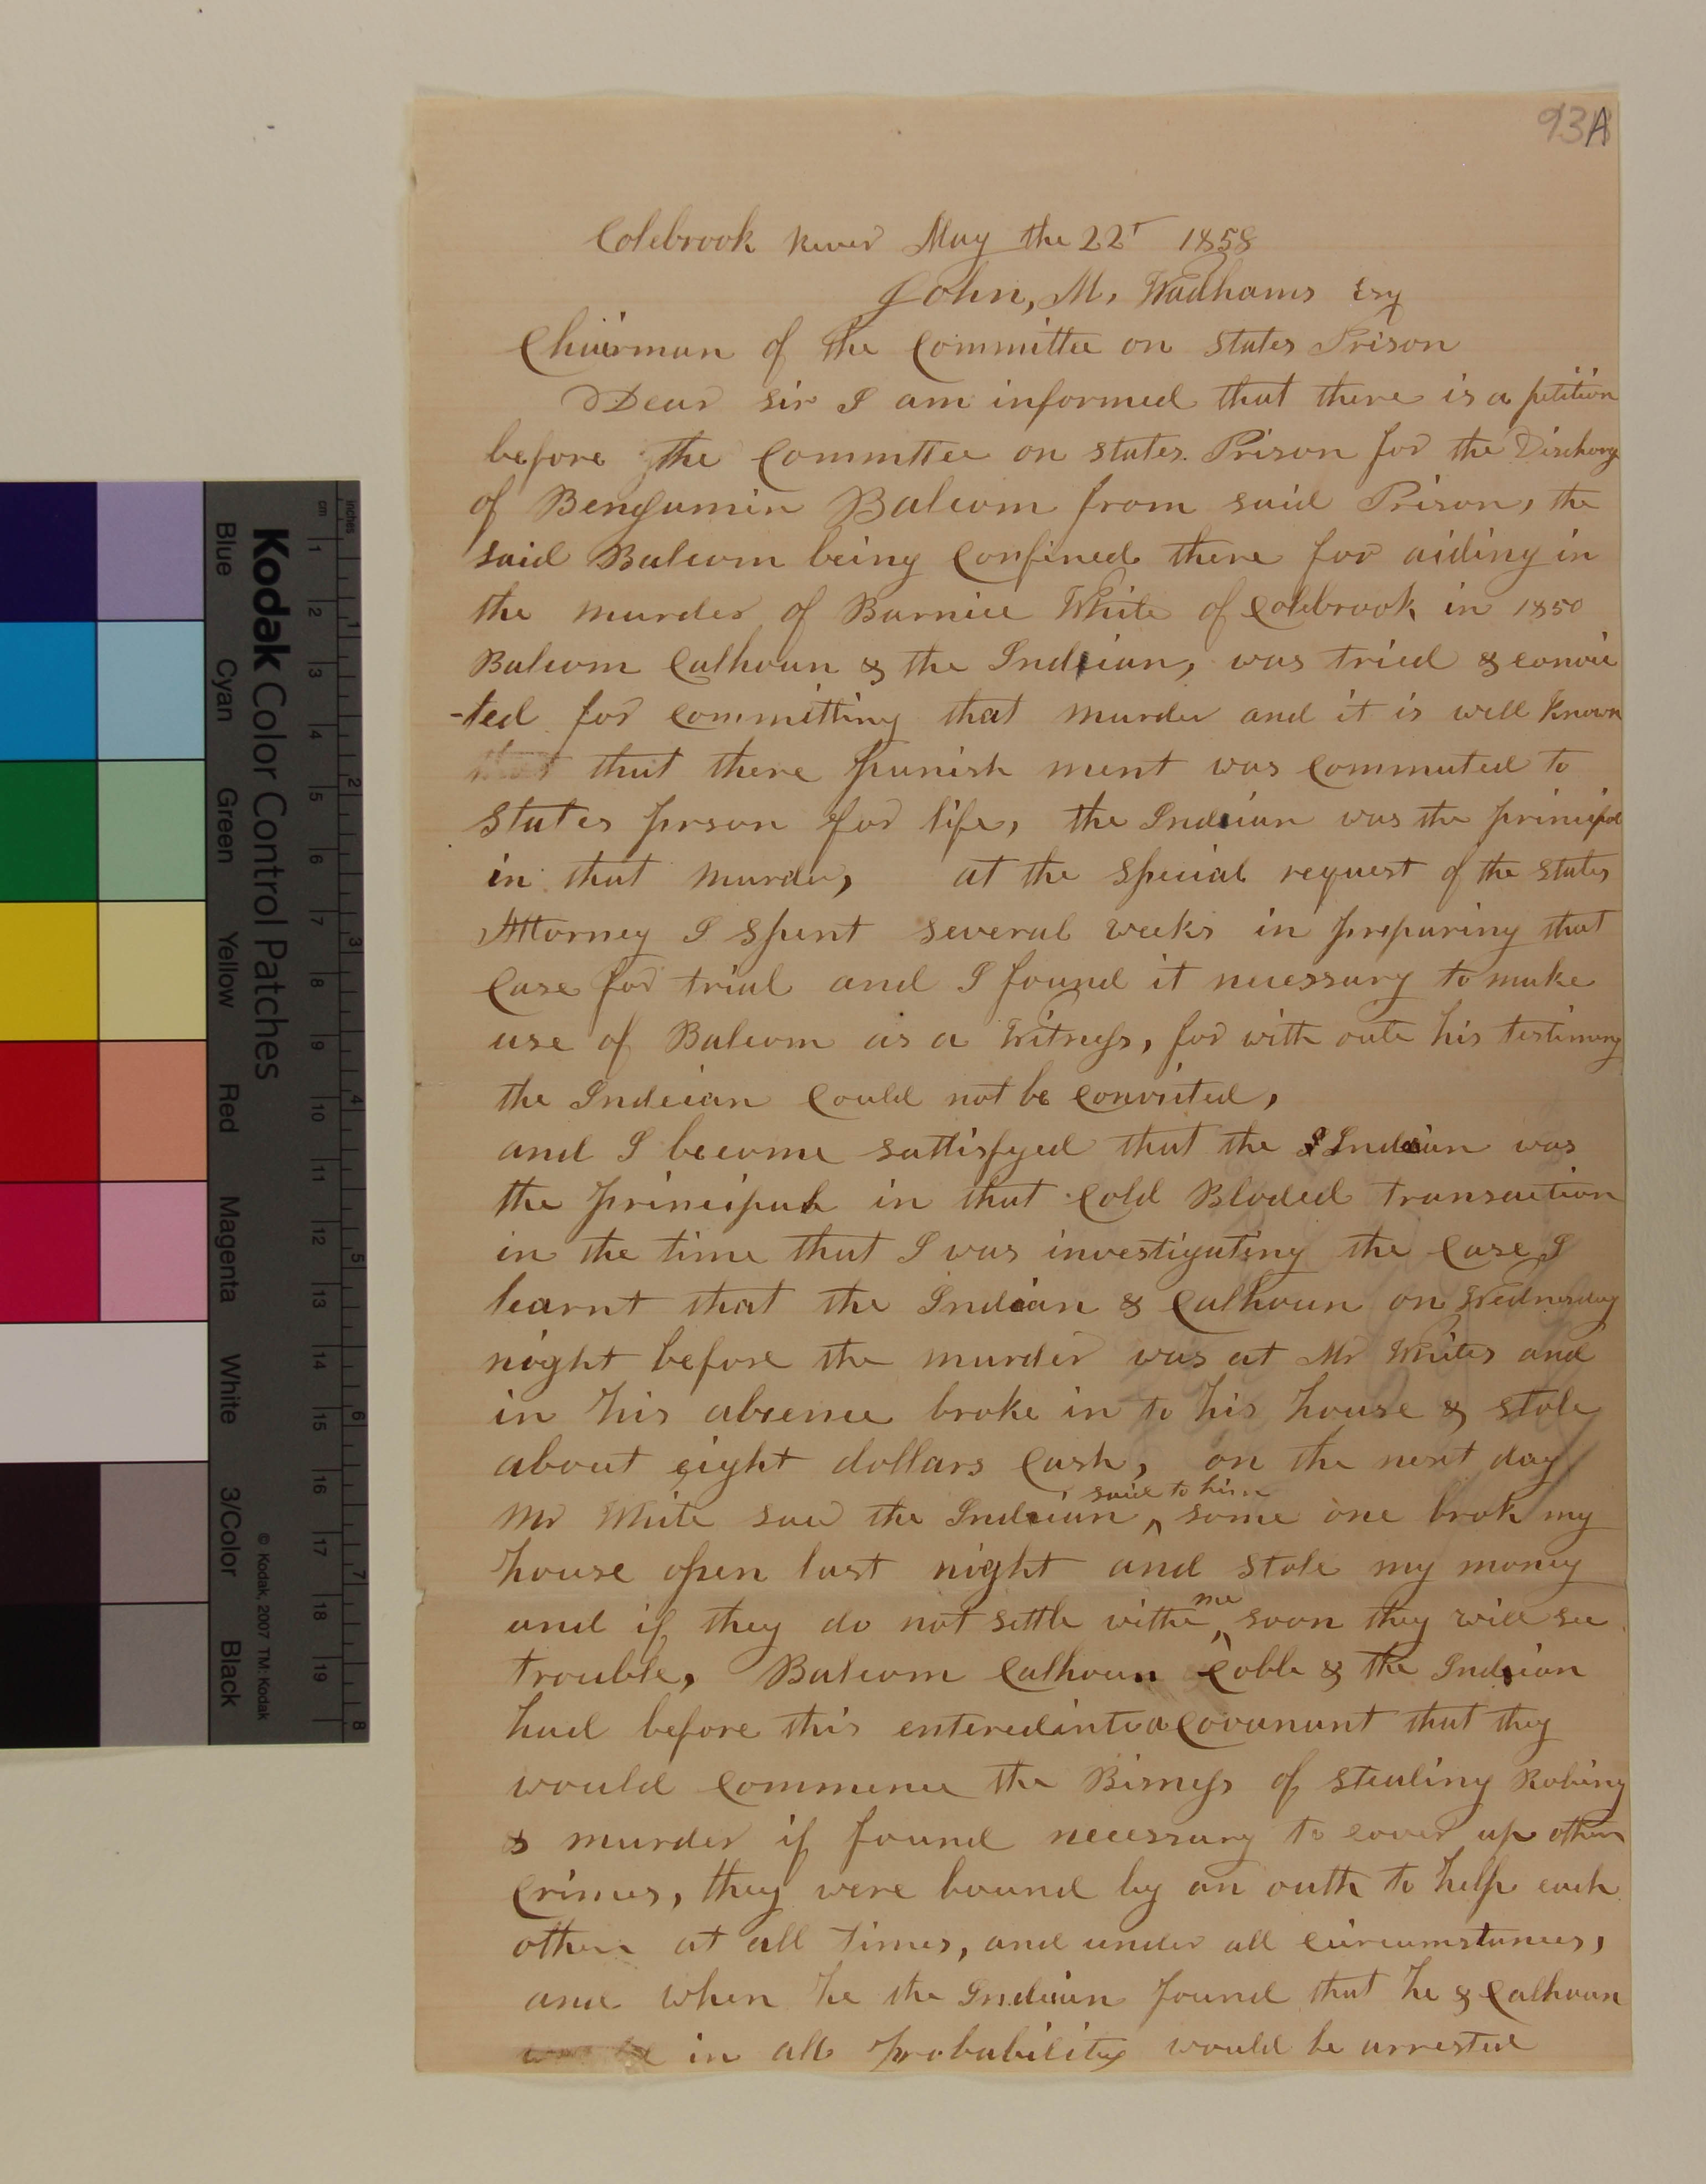 93A
Colebrook River May the 22t 1858
John, M, Wadhams Esq
Chairman of the Committee on States Prison
Dear sir I am informed that there is a petition
before the Committee on states Prison for the Discharg
of Benjamin Balcom from said Prison, the
said Balcom being Confined there for aiding in
the murder of Barnice White of Colebrook in 1850
Balcom Calhoun & the Indian, was tried & convic
-ted for committing that murder and it is well Known
that there punish ment was Commuted to
States prson for life, the Indian was the principal
in that murder, at the special request of the states
Attorney I spent several weeks in preparing that
Case for trial and I found it necessary to make
use of Balcom as a Witness, for with oute his testimony
the Indeian Could not be Convicted,
and I became sattisfyed that the Indeian was
the principal in that Cold Bloded transaction
in the time that I was investigating the Case I
learnt that the Indian & Calhoun on Wednesday
night before the murder was at Mr Whites and
in his absence broke in to his house & stole
about eight dollars Cash, on the next day
said to him
Mr White saw the Indeian ^ some one brok my
house open last night and stole my money
me
and if they do not settle withe ^ soon they will see
trouble, Balcom Calhoun Coble & the Indian
had before this entered into a Covanant that they
would Commence the Bisness of stealing Robing
& murder if found necessary to cover up other
Crimes, they were bound by an outh to help each
other at all times, and under all Circumstances,
and when he the Indeian found that he & Calhoun
in all probability would be arrested
Kodak Color Control Patches
Blue Cyan Green Yellow Red Magenta White 3/Color Black
© Kodak, 2007 TM: Kodak
inches 1 2 3 4 5 6 7 8
cm 1 2 3 4 5 6 7 8 9 10 11 12 13 14 15 16 17 18 19